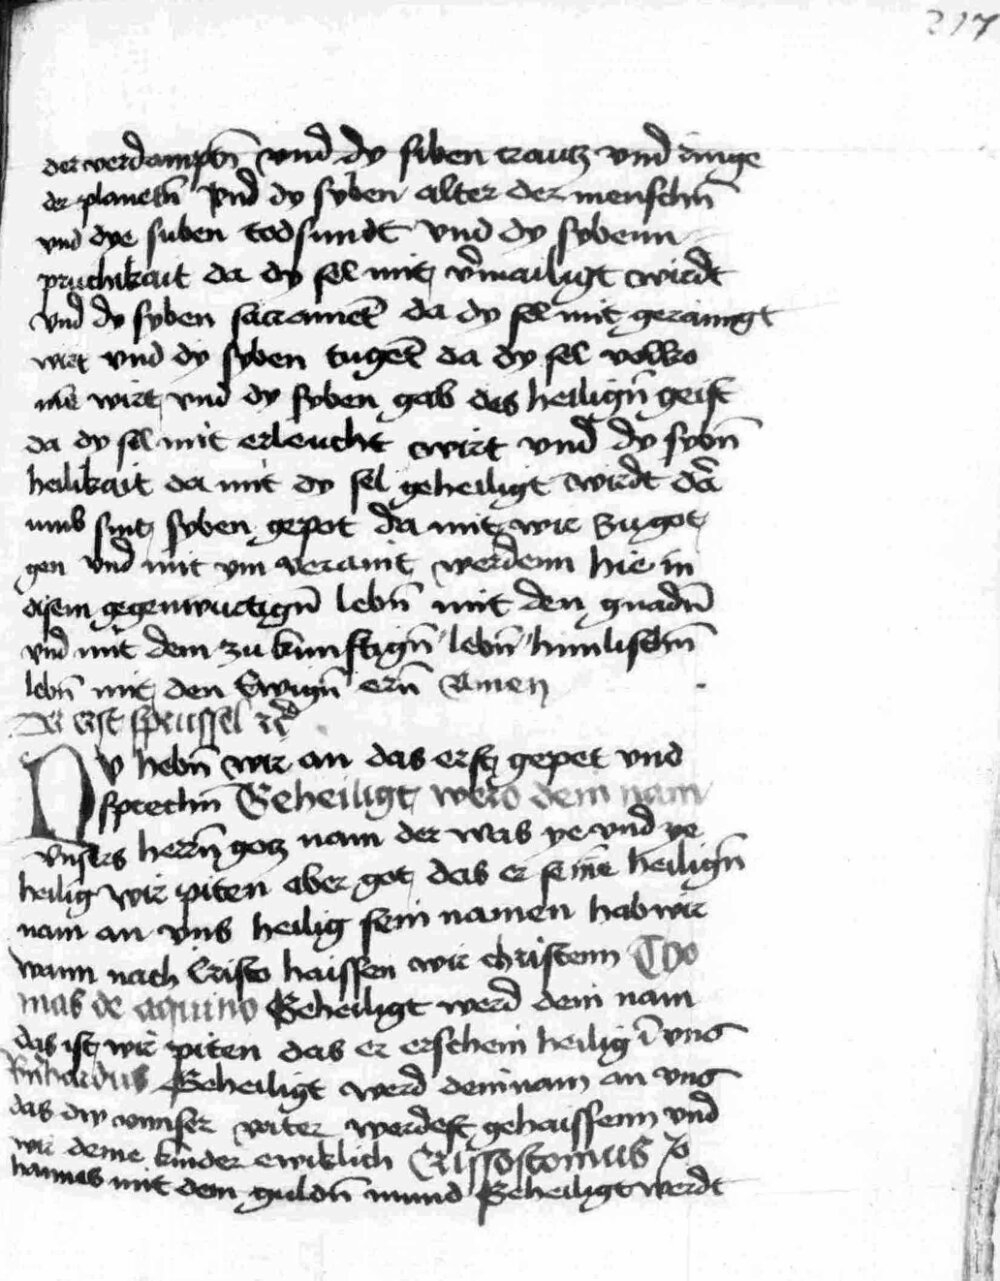 217
der verdamptn̄ vnd dy siben craucz vnd ringe
der planetn̄ Vnd dy syben alter der menschn̄
vnd dye suben todsundt vnd dy sybenn
pruchikait da dy sel mit v̄mailigt wirdt
Vnd dy syben sacramēt da dy sel mit gerainigt
wirt vnd dy syben tugēt da dy sel volko
mē wirt vnd dy syben gab des heilign̄ geist
da dy sel mit erleucht wirt vnd dy sybn̄
heilikait da mit dy sel geheiligt wirdt dar̄
umb sint syben gepot da mit wir zu got
gen vnd mit ym veraint werdenn hie in
disem gegenwurtign̄ lebn̄ mit den gnadn̄
vnd mit dem zu kunftign̄ lebn̄ himlischn̄
lebn̄ mit den Ewign̄ ern̄ Amen
Der erst
Nv hebn̄ wir an das erst gepet vnd
sprechn̄ Geheiligt werd dein nam
Vnsers herrn̄ gotz nam der was ye vnd ye
heilig wir piten aber got das er seinē heilign̄
nam an vns heilig sein namen hab wir
wann nach Cristo haissen wir christenn Tho
mas de aquino Geheiligt werd dein nam
das ist wir piten das er erschein heilig ī vns
Geheiligt werd dein nam an vns
das dw vnnser vater werdest gehaissenn vnd
wir deine kinder ewiklich Crissostomus Jo
hannes mit dem guldn̄ mund Geheiligt werdt